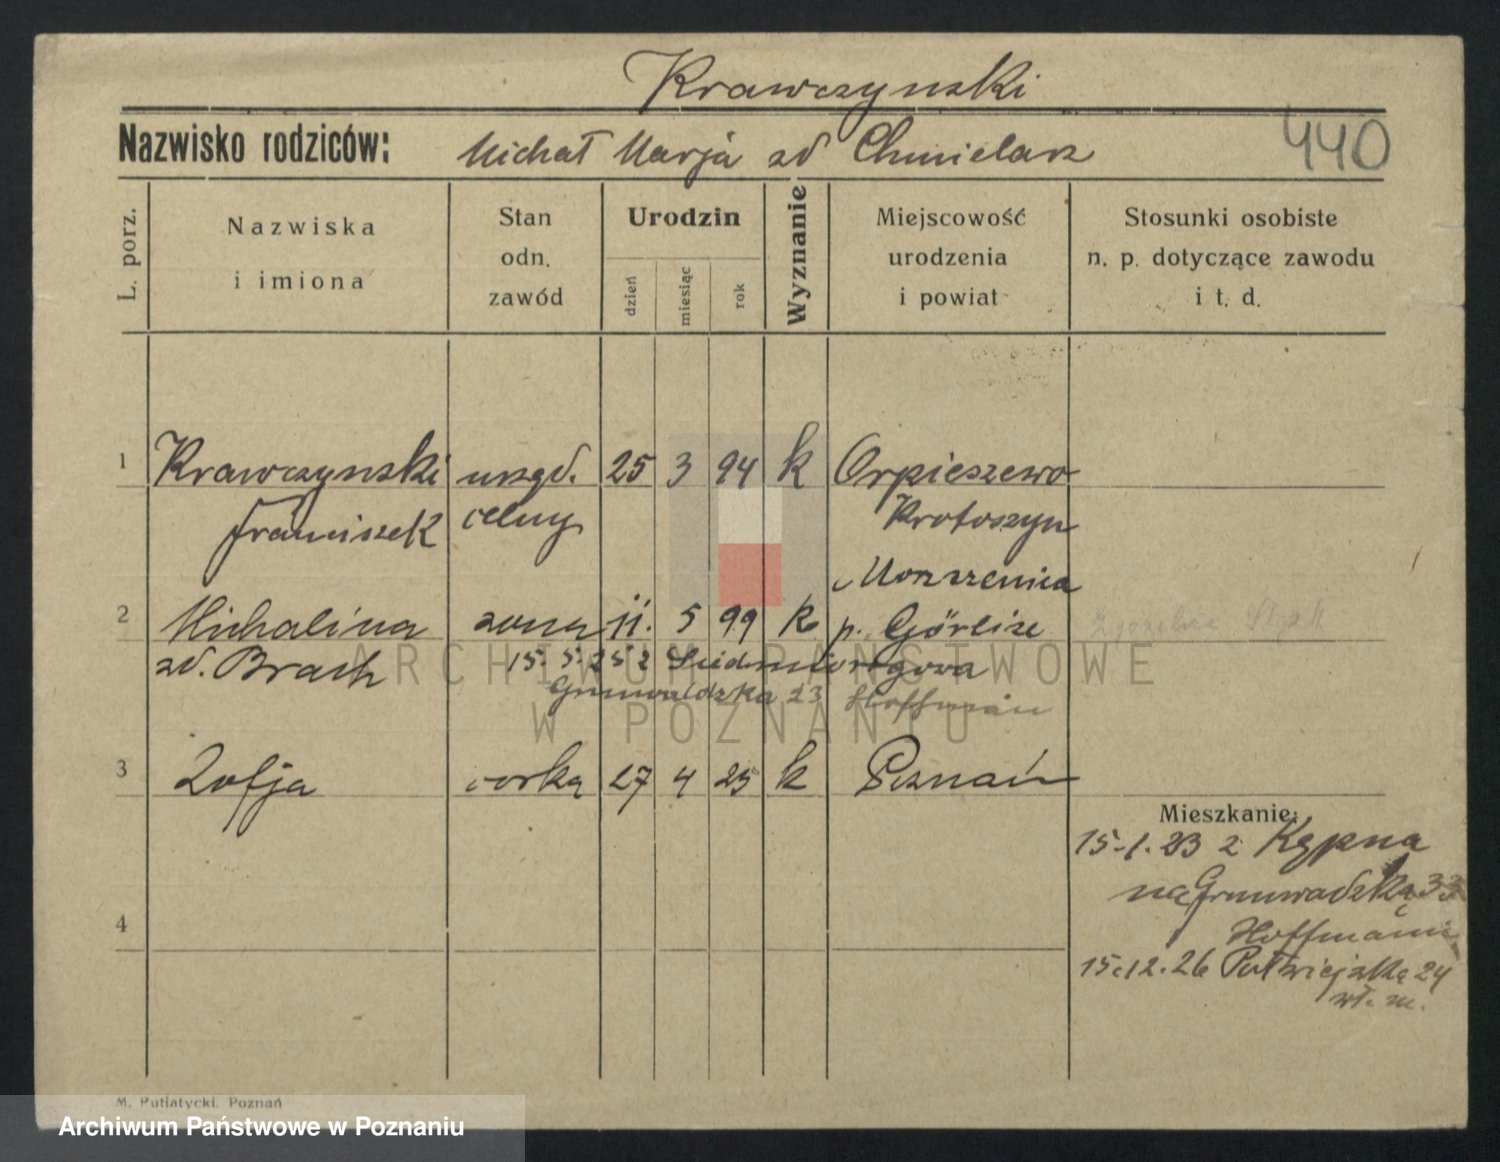 Krawczynski
440
Nazwisko rodziców: Michał Marja zd Chmielarz
L. porz.
Nazwiska i imiona
Stan odn. zawód
Urodzin
dzień miesiąc rok
Wyznanie
Miejscowość urodzenia i powiat
Stosunki osobiste n. p. dotyczące zawodu i t. d.
1 Krawczynski urzęd. 25 3 94 k Orpieszewo
Franciszek celny Krotoszyn
2 Michalina żona 11. 5 99 k p. Görlize
zd. Brach 15. 5. 25 z
Grunwaldzka 23 Hoffman
ARCHIWUM PAŃSTWOWE
W POZNANIU
3 Zofja córka 27 4 25 k Poznań
Mieszkanie:
15-1.23 z Kępna
na Grunwadzką 33
Hoffmann
15.12.26 24
wł. m.
4
M. Putiatycki. Poznań
Archiwum Państwowe w Poznaniu